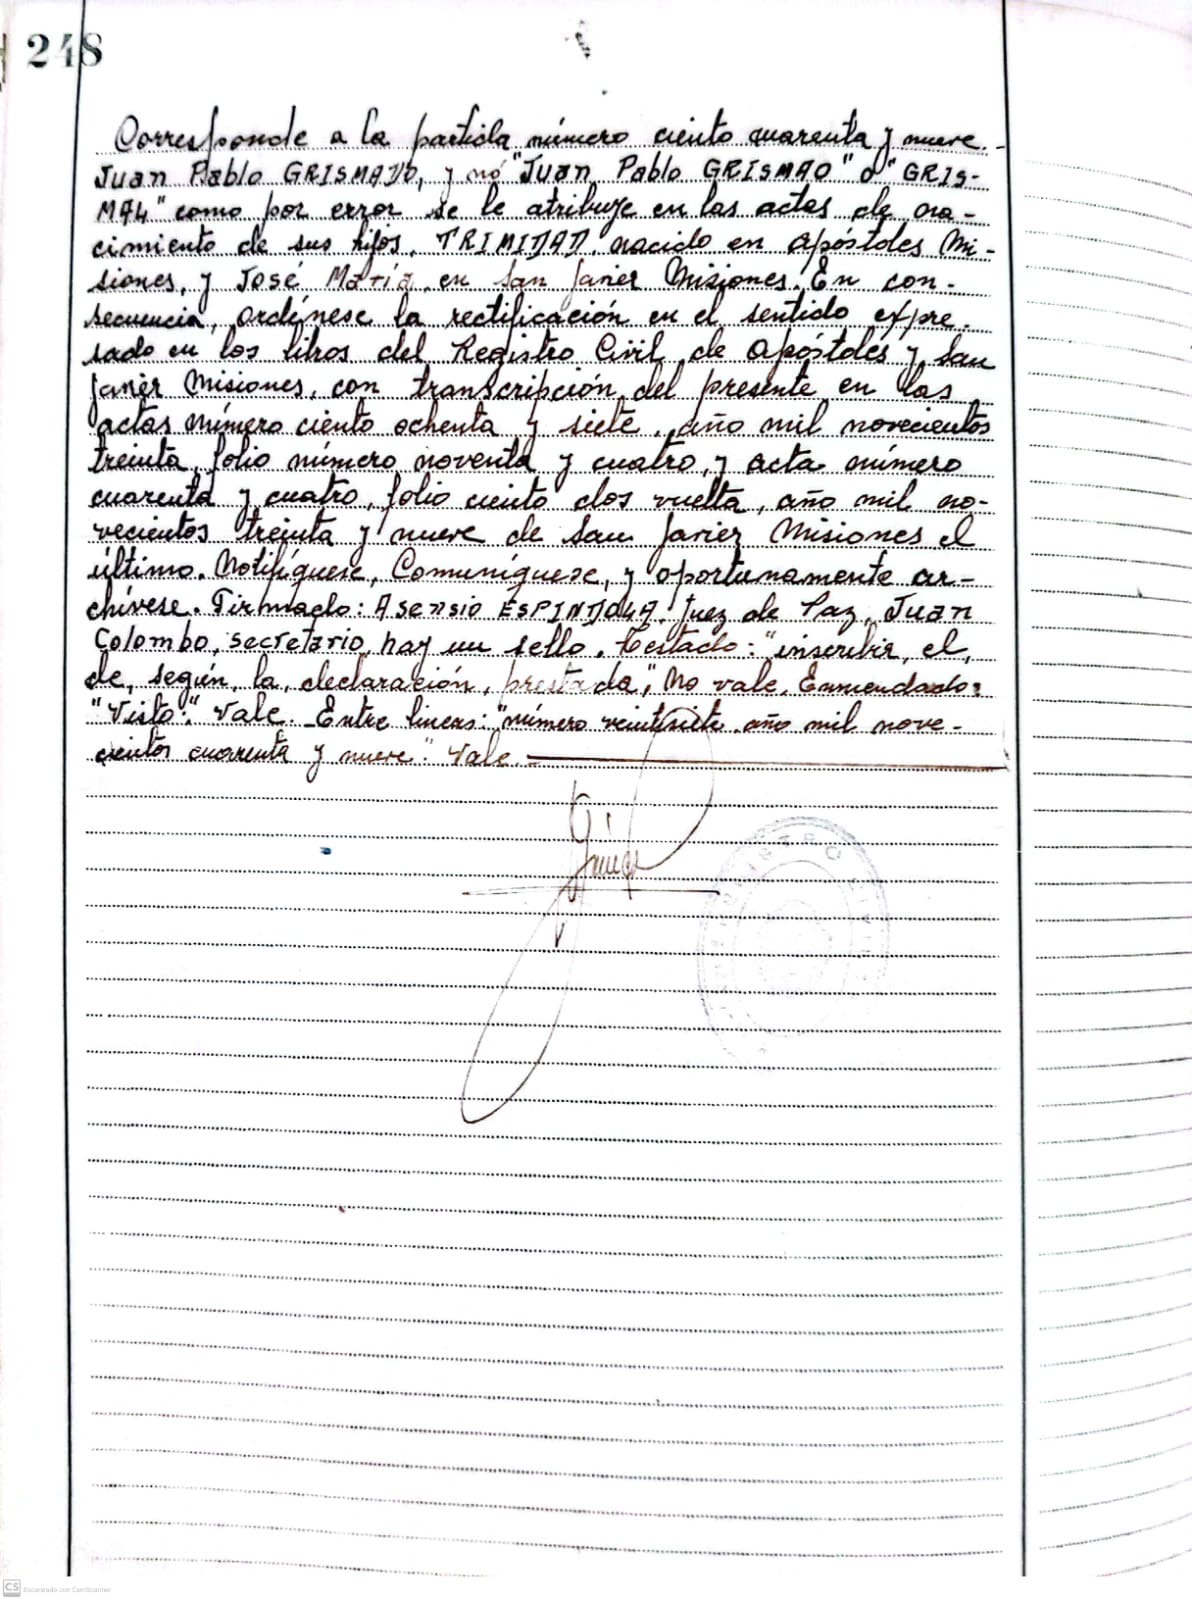 248
Corresponde a la partida número ciento cuarenta y nueve.-
Juan Pablo GRISMADO, y nó "Juan Pablo GRISMAO" o "GRIS-
MAL" como por error se le atribuye en las actas de na-
cimiento de sus hijos, TRINIDAD, nacido en Apóstoles Mi-
siones, y José María, en San Javier Misiones. En con-
secuencia, ordénese la rectificación en el sentido expre-
sado en los libros del Registro Civil de Apóstoles y San
Javier Misiones, con transcripción del presente en las
actas número ciento ochenta y siete, año mil novecientos
treinta, folio número noventa y cuatro, y acta número
cuarenta y cuatro, folio ciento dos vuelta, año mil no-
vecientos treinta y nueve de San Javier Misiones el
último. Notifíquese, Comuníquese, y oportunamente ar-
chívese. Firmado: Asensio ESPINDOLA. Juez de Paz, Juan
Colombo, secretario, hay un sello. Testado: "inscribir, el,
de, según, la, declaración, prestada", No vale. Enmendado:
"Visto:" Vale. Entre lineas: "número veintisiete año mil nove-
cientos cuarenta y nueve". Vale
REGISTRO CIVIL
CS Escaneado con CamScanner